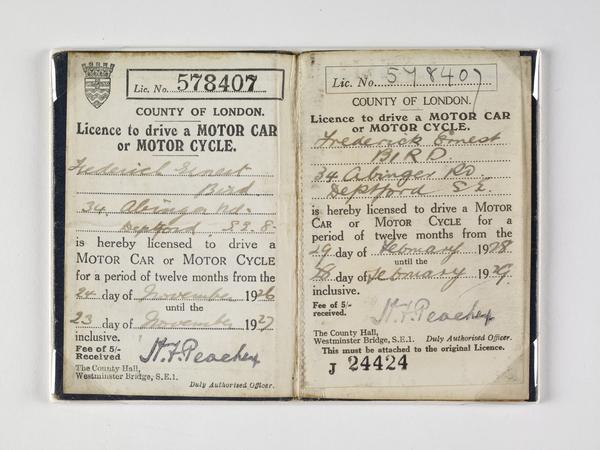 Lic. No. 578407
COUNTY OF LONDON.
Licence to drive a MOTOR CAR
or MOTOR CYCLE.
Frederick Ernest
Bird.
34, Abinger Rd.
Deptford S.E. 8.
is hereby licensed to drive a
MOTOR CAR OR MOTOR CYCLE
for a period of twelve months from the
24 day of November 1926
until the
23 day of November 1927
inclusive.
Fee of 5/-
Received
H. F. Peachey
The County Hall,
Westminster Bridge, S.E.1.
Duly Authorised Officer.
Lic. No. 578407
COUNTY OF LONDON.
Licence to drive a MOTOR CAR
or MOTOR CYCLE.
Frederick Ernest
BIRD
34 Abinger Rd.
Deptford S.E.
is hereby licensed to drive a MOTOR
CAR OR MOTOR CYCLE for a
period of twelve months from the
29 day of February 1928
until the
28 day of February 1929
inclusive.
Fee of 5/-
received.
H. F. Peachey
The County Hall,
Westminster Bridge, S.E.1. Duly Authorised Officer.
This must be attached to the original Licence.
J 24424